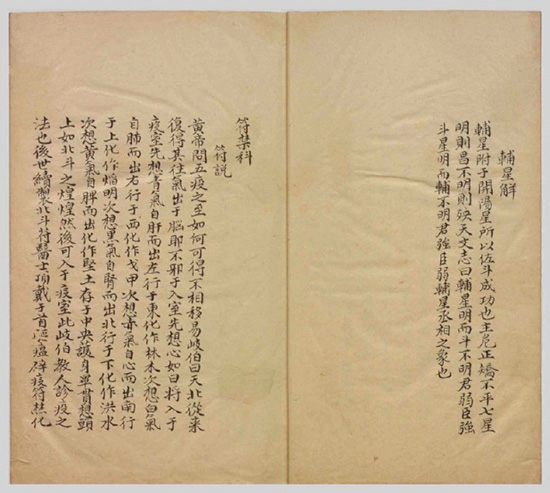 輔星解
輔星附于開陽星所以佐斗成功也主正矯不平七星
明則昌不明則殃天文志曰輔星明而斗不明君弱臣強
斗星明而輔不明君強臣弱輔星丞相之象也
符禁科
符説
黃帝問五疫之至如何可得不相移易岐伯曰天北從來
復得其往氣出于腦耶不邪于入室先想心如日將入于
疫室先想青氣自肝而出左行于東化作林木次想白氣
自肺而出右行于西化作戈甲次想赤氣自心而出南行
于上化作焰明次想黑氣自腎而出北行于下化作洪水
次想黃氣自脾而出化作堅土存于中央護身畢貫想頭
上如北斗之煌煌然後可入于疫室此岐伯教人診疫之
法也後世續製北斗符醫士頂戴于首瘟辟疫符焚化